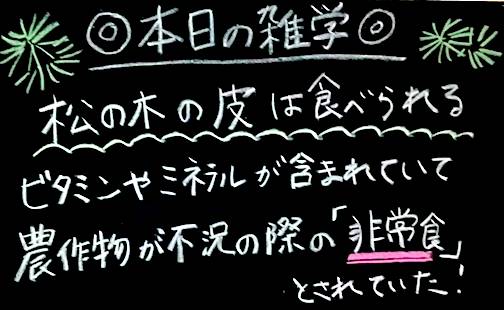 ◎本日の雑学◎
松の木の皮は食べられる
ビタミンやミネラルが含まれていて
農作物が不況の際の「非常食」
とされていた!